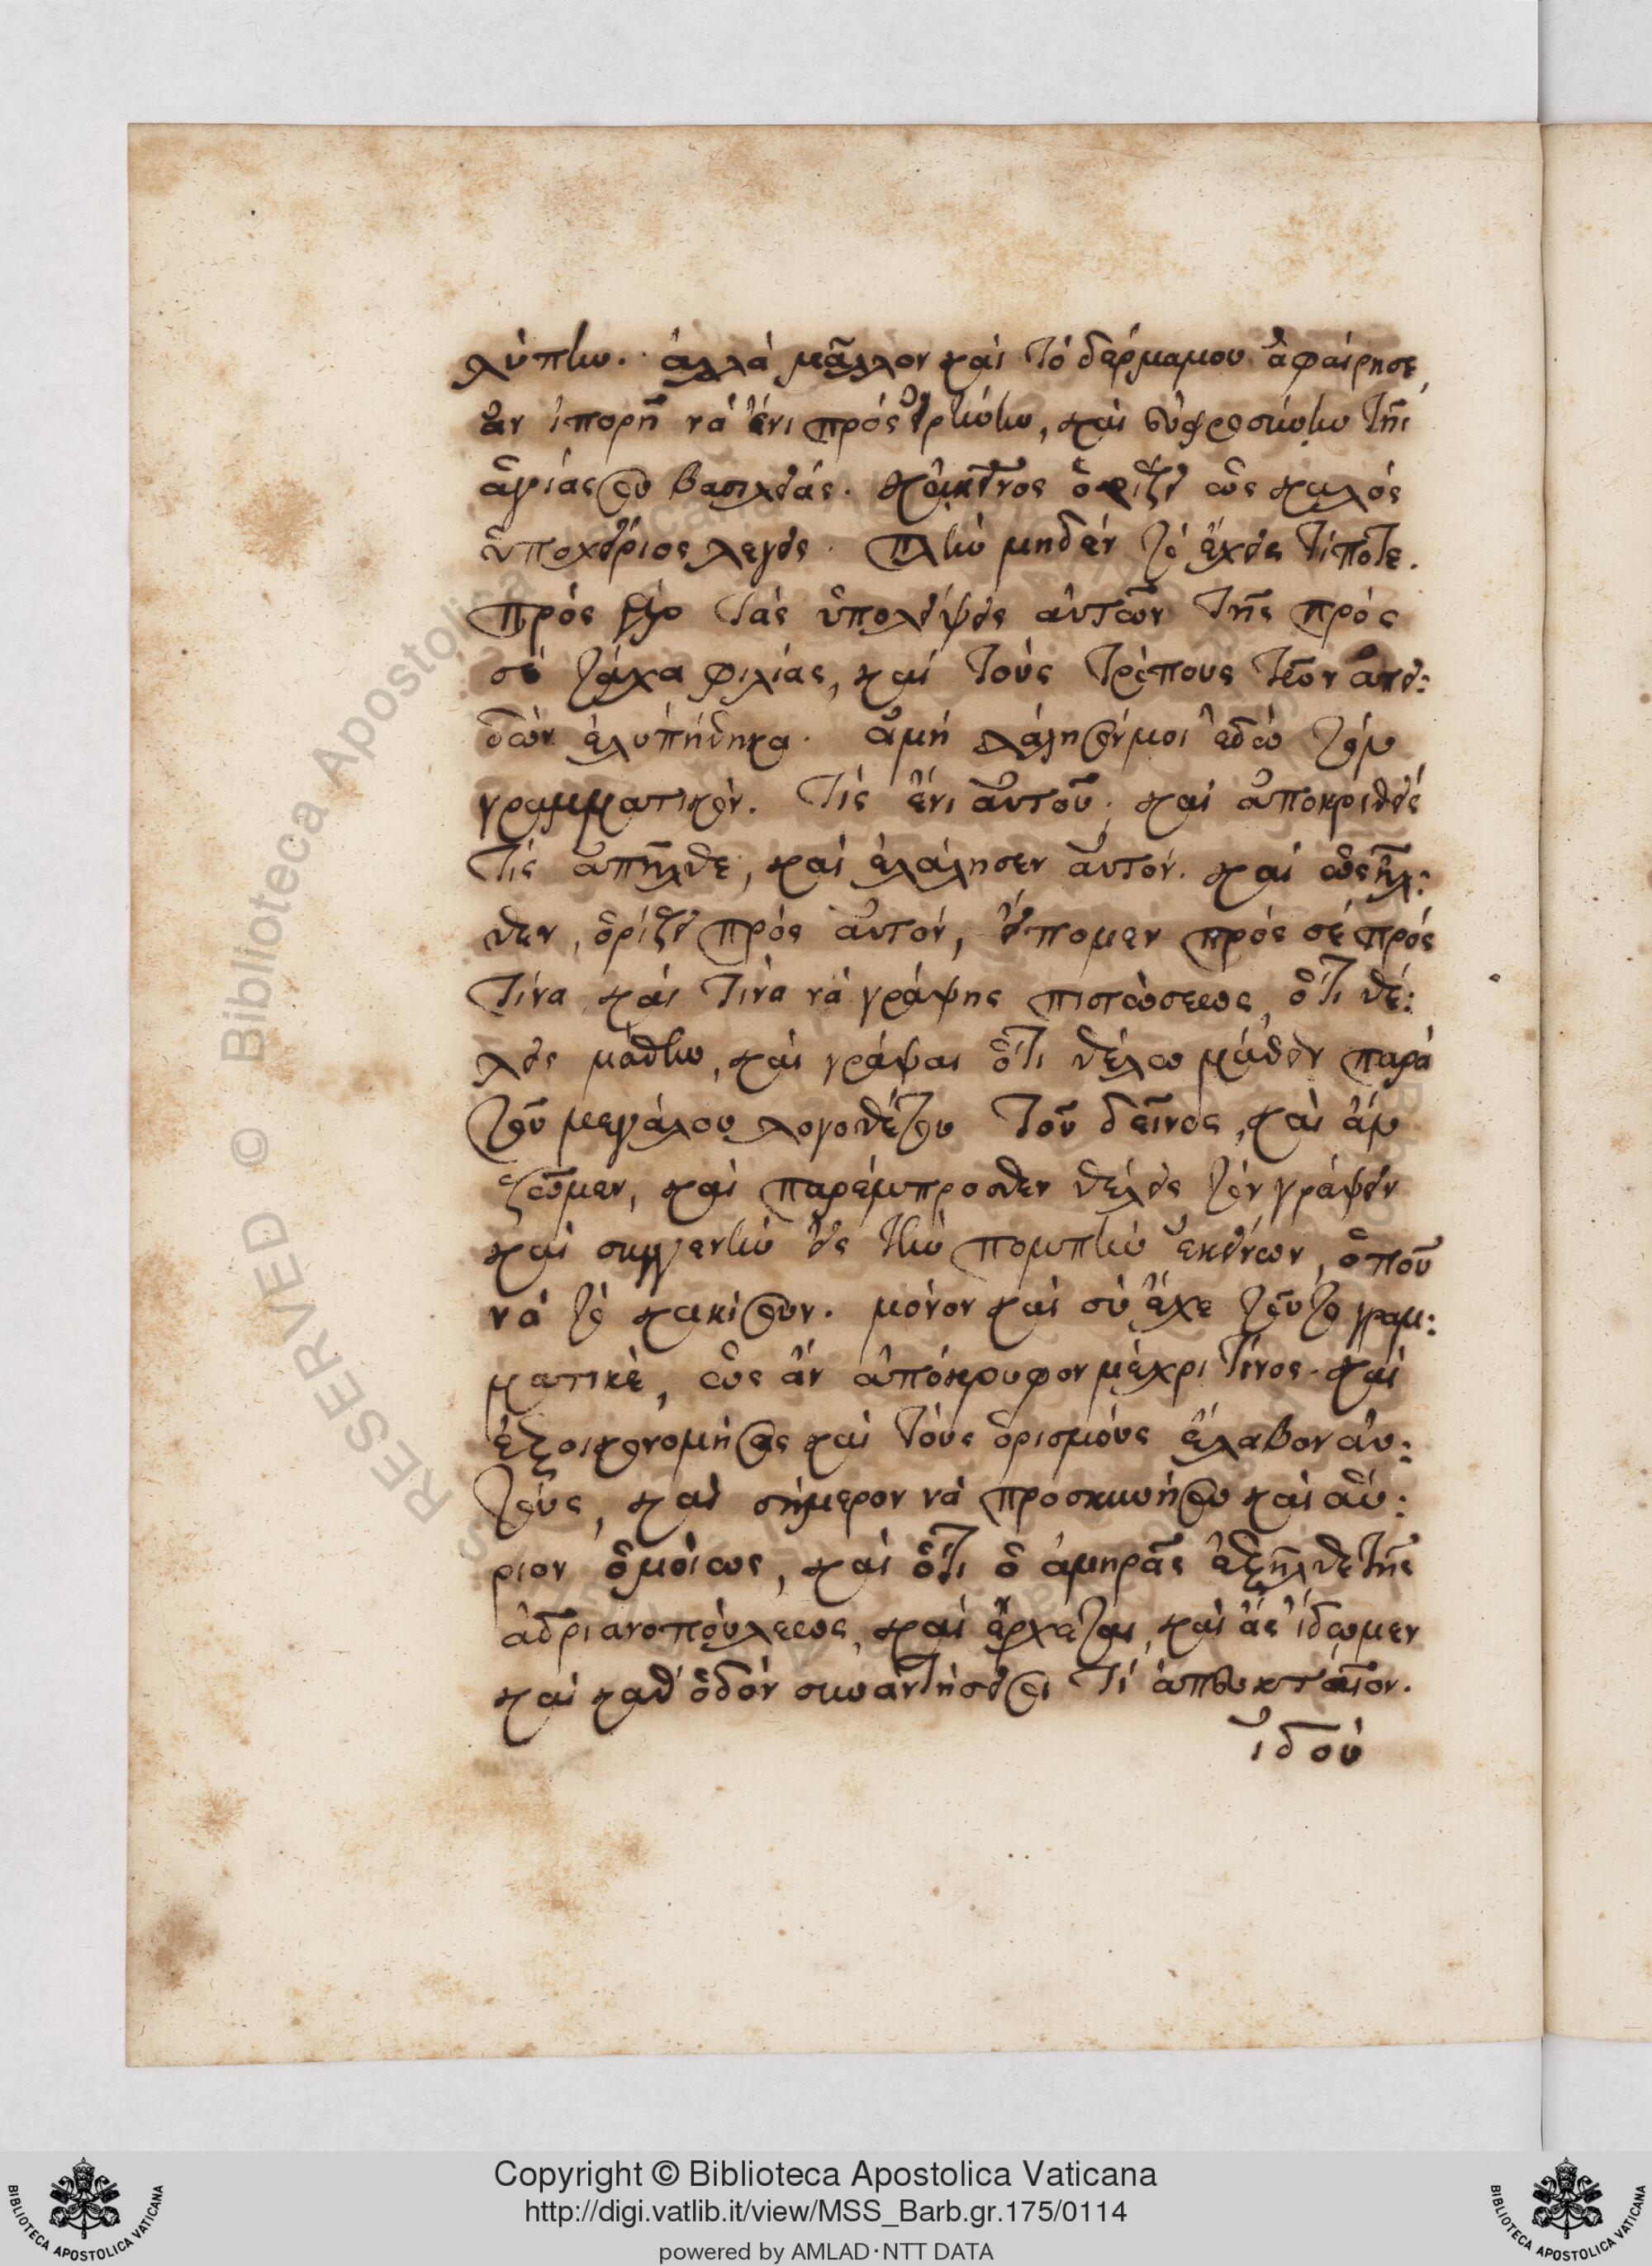 λύπην. ἀλλὰ μᾶλλον καὶ τὸ δέρμαμου ἀφαίρησε,
ἂν ἰπορῇ νὰ ἔνι πρὸς εἰρήνην, καὶ εὐφροσύνην τῆς
ἁγίας σου βασιλείας. κἀκεῖνος ὁρίζει ὡς καλὸς
ὑποχείριος λέγεις. πλὴν μηδὲν τὸ ἔχεις τίποτε.
πρὸς γὰρ τὰς ὑπολείψεις αὐτῶν τῆς πρὸς
σὲ τάχα φιλίας, καὶ τοὺς τρόπους τῶν ἀπει:
δῶν ἐλυπήθηκα. ἀμὴ λάλησόν μοι ἐδῶ τὸν
γραμματικόν. τίς ἔνι αὐτοῦ; καὶ ἀποκριθεὶς
τὶς ἀπῆλθε, καὶ ἐλάλησεν αὐτόν. καὶ ὡς ἦλ:
θεν, ὁρίζει πρὸς αὐτόν, εἴπομεν πρὸς σὲ πρὸς
τίνα καὶ τίνα νὰ γράψῃς πιστώσεως, ὅτι θέ:
λεις μάθειν, καὶ γράψαι ὅτι θέλω μάθειν παρὰ
τοῦ μεγάλου λογοθέτου τοῦ δεῖνος, καὶ ἂν
ζοῦμεν, καὶ παρέμπροσθεν θέλεις τὸν γράψειν
καὶ συγγενῆν εἰς τὴν πομπὴν ἐκείνων, ὁποῦ
νὰ τὸ κακίσουν. μόνον καὶ σὺ ἔχε τοῦτο γραμ:
ματικέ, ὡς ἂν ἀπόκρυφον μέχρι τινός. καὶ
ἐξοικονομήσας καὶ τοὺς ὁρισμοὺς ἔλαβον αὐ:
τούς, καὶ σήμερον νὰ προσκυνήσω καὶ αὔ:
ριον ὁμοίως, καὶ ὅτι ὁ ἀμηρᾶς ἐξῆλθε τῆς
ἀδριανοπόυλεως, καὶ ἔρχεται, καὶ ἂς ἰδῶμεν
καὶ καθ' ὁδὸν συναντήσει σοι τί ἀπευκταῖον.
ἰδοὺ
Copyright © Biblioteca Apostolica Vaticana
http://digi.vatlib.it/view/MSS_Barb.gr.175/0114
powered by AMLAD·NTT DATA
BIBLIOTECA APOSTOLICA VATICANA
BIBLIOTECA APOSTOLICA VATICANA